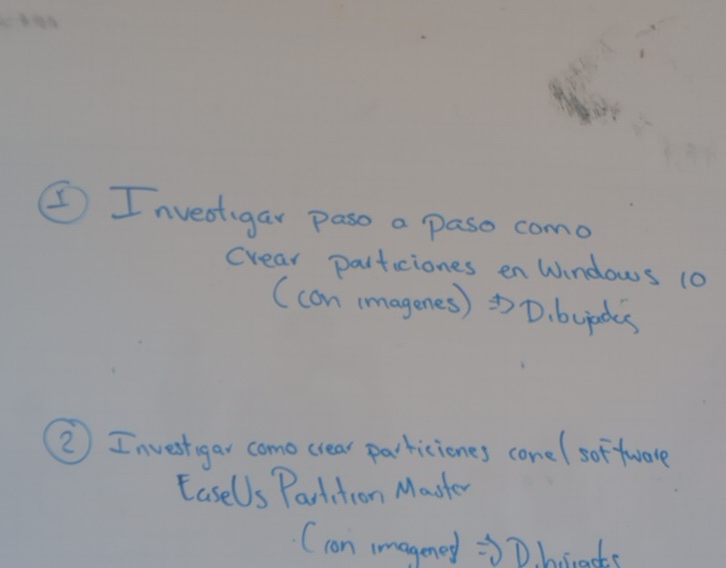 ① Investigar paso a paso como
crear particiones en Windows 10
(con imagenes) => Dibujados
② Investigar como crear particiones con el software
EaseUs Partition Master
(con imagenes) => Dibujados